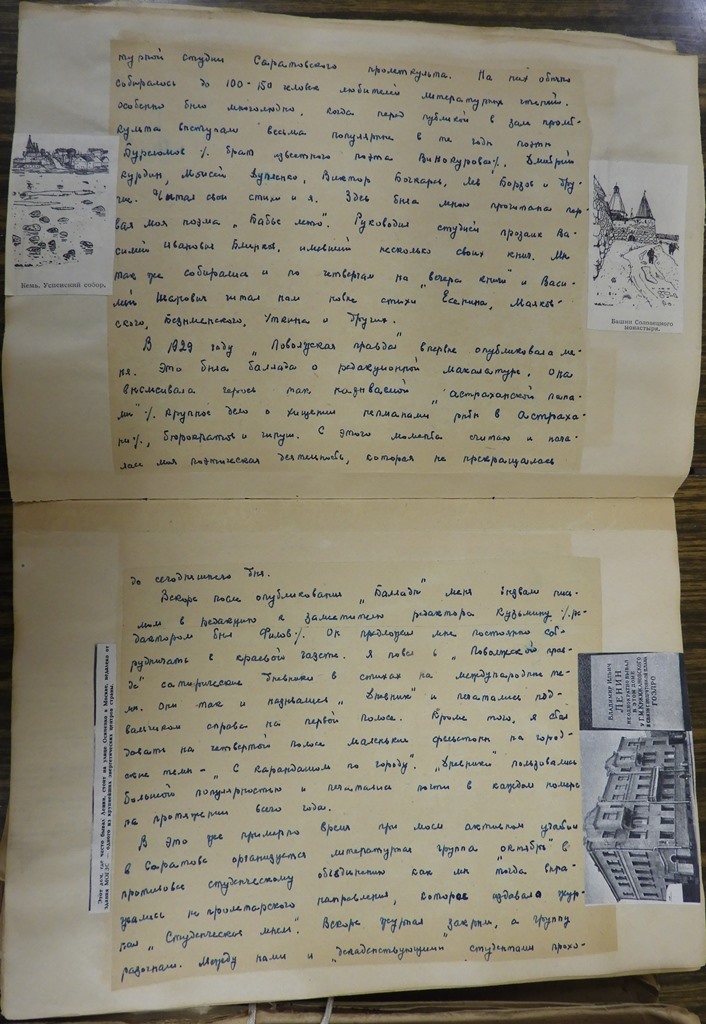 турной студии Саратовского пролеткульта. На них обычно
собиралось до 100-150 человек любителей литературных чтений.
Особенно было многолюдно, когда перед публикой в зале пролет-
культа выступали весьма популярные в те годы поэты
Бурсомов %. брат известного поэта Винокурова %, Дмитрий
Курдин, Моисей Дупенко, Виктор Бочкарев, Лев Борзов и дру-
гие. Читал свои стихи и я. Здесь была мною прочитана пер-
вая моя поэма „Бабье лето". Руководил студией прозаик Ва-
силий Иванович имевший несколько своих книг. Мы
так же собирались и по четвергам на „вечера книги" и Васи-
лий Шарович читал нам новые стихи Есенина, Маяков-
ского, Безыменского, Уткина и других.
В 1929 году „Поволжская правда" впервые опубликовала ме-
ня. Это была баллада о редакционной макалатуре. Она
высмеивала героев так называемой „астраханской пана-
мы" %. Крупное дело о хищении нэпманами рыбы в Астраха-
ни %, бюрократов и чинуш. С этого момента считаю и нача-
лась моя поэтическая деятельность, которая не прекращалась
Кемь. Успенский собор.
Башня Соловецкого
монастыря.
до сегодняшнего дня.
Вскоре после опубликования „Баллады" меня вызвали пись-
мом в редакцию к заместителю редактора Кузьмину %. ре-
дактором был Филов %. Он предложил мне постоянно сот-
рудничать в краевой газете. Я повел в „Поволжской прав-
де" сатирические дневники в стихах на международные те-
мы. Они так и назывались „Дневник" и печатались под-
вальчиком справа на первой полосе. Кроме того, я стал
давать на четвертой полосе маленькие фельетоны на город-
ские темы - „С карандашом по городу". „Дневники" пользовались
большой популярностью и печатались почти в каждом номере
на протяжении всего года.
В это же примерно время при моем активном участии
в Саратове организуется литературная группа „Октябрь" в
противовес студенческому объединению как мы тогда выра-
жались непролетарского направления, которое издавало жур-
нал „Студенческая мысль". Вскоре журнал закрыли, а группу
разогнали. Между нами и „декадентствующими" студентами прохо-
Этот дом, где часто бывал Ленин, стоит на улице Осипенко в Москве, недалеко от
здания МОГЭС — одного из крупнейших энергетических центров страны.
ВЛАДИМИР ИЛЬИЧ
ЛЕНИН
НЕОДНОКРАТНО БЫВАЛ
В ЭТОМ ДОМЕ
У Г.М. КРЖИЖАНОВСКОГО
ГОЭЛРО